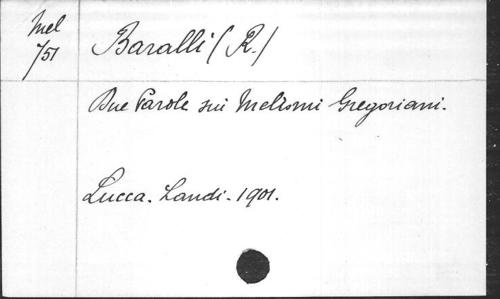 Mel
751
Baralli (R.)
Due Parole sui Melismi Gregoriani.
Lucca. Landi. 1901.